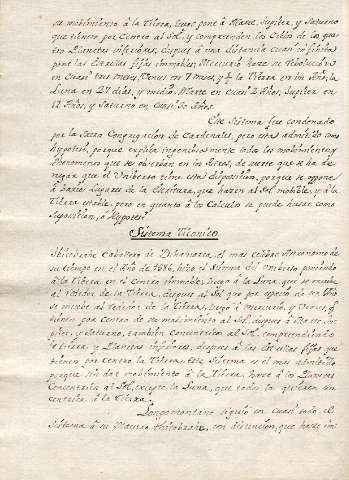 su movimiento à la Tierra, luego pone à Marte, Jupiter, y Saturno
que tienen por Centro al Sol, y comprenden los Cielos de los qua-
tro Planetas inferiores, despues à una distancia cuasi infinita
pone las Estrellas fijas inmobles; Mercurio hace su Rebolucion
en cuasi tres meses, Venus en 7 meses, y ½ la Tierra en un Año, la
Luna en 27 dias, y medio, Marte en cuasi 2 Años, Jupiter en
12 Años, y Saturno en cuasi 30 Años.
Este Sistema fue condenado
por la Sacra Congregacion de Cardenales, pero esta admitido como
hypotesi, porque explica ingeniosamente todos los movimientos, y
Phenomenos que se observan en los Astros, de suerte que se ha de
negar que el Universo tiene esta disposicion, porque se oppone
à varios Lugares de la Escritura, que hacen al Sol mobible, y à la
Tierra estable, pero en quanto à los Calculos se puede usar como
suposicion, ò Hypotesi
Sistema Ticonico.
Thicobrahe Caballero de Dinamarca, el mas celebre Astronomo de
su tiempo en el Año de 1586, hizo el Sistema del Universo poniendo
à la Tierra, en el centro inmoble, luego à la Luna, que se mueve
al rededor de la Tierra, despues al Sol que por espacio de un Año
se mueve al rededor de la Tierra, luego à Mercurio, y Venus, q
tienen por centro de su movimiento al Sol, despues à Marte, Ju-
piter, y Saturno, tambien concentricos al Sol, comprendiendo
à tierra, y Planetas inferiores, despues à las Estrellas fijas que
tienen por centro la Tierra. Este Sistema es el mas admitido
porque sin dar movimiento à la Tierra, hace à los Planetas
Concentricos al Sol, excepto la Luna, que todos la quieren con
centrica à la Tierra.
Longomontano siguio en cuasi todo el
Sistema à su Maestro Thicobrahe, con distincion, que hace in